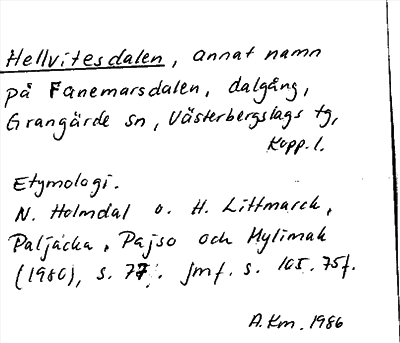 Hellvitesdalen, annat namn
på Fanemarsdalen, dalgång,
Grangärde sn, Västerbergslags tg,
Kopp. l.
Etymologi.
N. Holmdal o. H. Littmarck,
Paljacka, Pajso och Mylimak
(1980), s. 77. jmf. s. 105. 75f.
A.Km. 1986